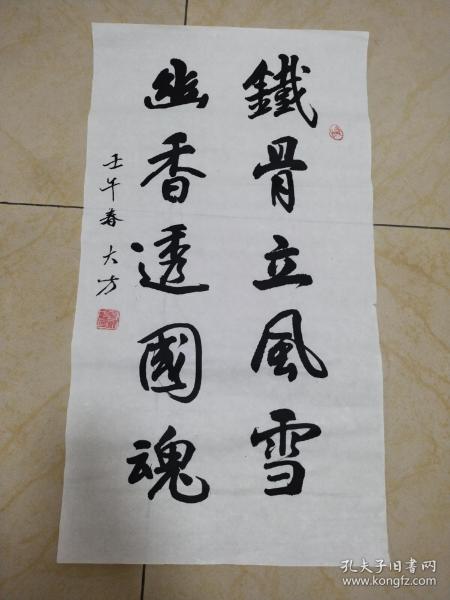 鐵骨立風雪
幽香透國魂
壬午春 大方
孔夫子旧书网
www.kongfz.com